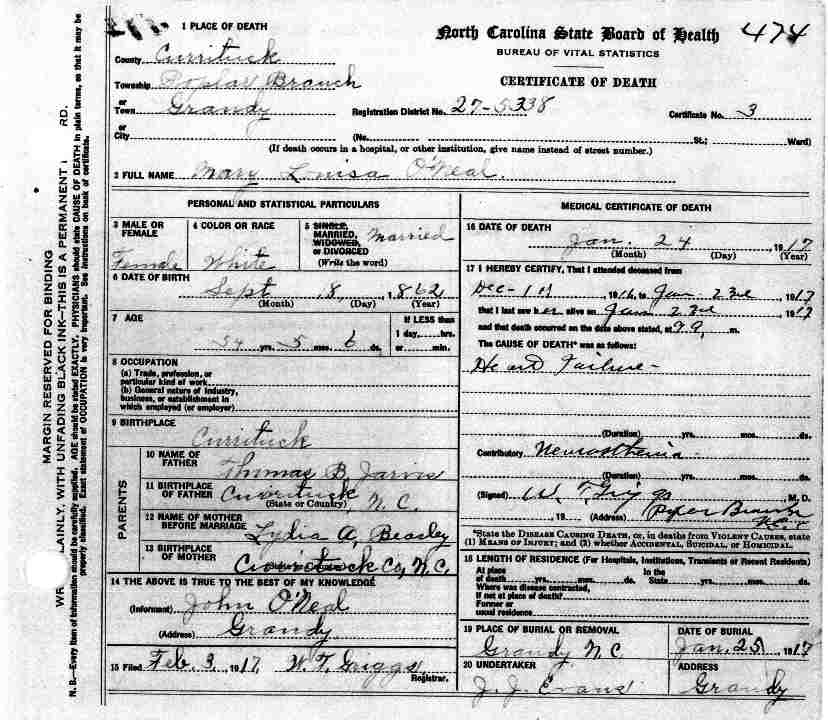 474
North Carolina State Board of Health
BUREAU OF VITAL STATISTICS
CERTIFICATE OF DEATH
1 PLACE OF DEATH
County Currituck
Township Poplar Branch
or
Town Grandy
Registration District No. 27-5338 Certificate No. 3
or
City (No. St.; Ward)
(If death occurs in a hospital, or other institution, give name instead of street number.)
2 FULL NAME Mary Louisa O'Neal
PERSONAL AND STATISTICAL PARTICULARS
3 MALE OR FEMALE Female
4 COLOR OR RACE White
5 SINGLE, MARRIED, WIDOWED, or DIVORCED (Write the word) Married
6 DATE OF BIRTH
Sept 18, 1862
(Month) (Day) (Year)
7 AGE
54 yrs. 5 mos. 6 ds.
If LESS than
1 day, hrs.
or min.
8 OCCUPATION
(a) Trade, profession, or
particular kind of work
(b) General nature of industry,
business, or establishment in
which employed (or employer)
9 BIRTHPLACE
Currituck
PARENTS
10 NAME OF FATHER Thomas B. Jarvis
11 BIRTHPLACE OF FATHER Currituck, N.C.
(State or Country)
12 NAME OF MOTHER BEFORE MARRIAGE Lydia A. Beasley
13 BIRTHPLACE OF MOTHER Currituck Co, N.C.
14 THE ABOVE IS TRUE TO THE BEST OF MY KNOWLEDGE
(Informant) John O'Neal
(Address) Grandy
15 Filed Feb. 3, 1917, W. T. Griggs
Registrar.
MEDICAL CERTIFICATE OF DEATH
16 DATE OF DEATH
Jan. 24 1917
(Month) (Day) (Year)
17 I HEREBY CERTIFY, That I attended deceased from
Dec- 1st, 1916, to Jan 23rd, 1917
that I last saw her alive on Jan 23rd, 1917
and that death occurred on the date above stated, at m.
The CAUSE OF DEATH* was as follows:
Heart Failure-
(Duration) yrs. mos. ds.
Contributory Neurasthenia-
(Duration) yrs. mos. ds.
(Signed) W. T. Griggs M. D.
, 19 (Address) N.C.
*State the DISEASE CAUSING DEATH, or, in deaths from VIOLENT CAUSES, state
(1) MEANS OF INJURY; and (2) whether ACCIDENTAL, SUICIDAL, or HOMICIDAL.
18 LENGTH OF RESIDENCE (For Hospitals, Institutions, Transients or Recent Residents)
At place of death yrs. mos. ds. In the State yrs. mos. ds.
Where was disease contracted,
if not at place of death?
Former or
usual residence
19 PLACE OF BURIAL OR REMOVAL
Grandy N.C.
DATE OF BURIAL
Jan. 25, 1917
20 UNDERTAKER
J. J. Evans
ADDRESS
Grandy
MARGIN RESERVED FOR BINDING
WR LAINLY, WITH UNFADING BLACK INK—THIS IS A PERMANENT RD.
N. B.—Every item of information should be carefully supplied. AGE should be stated EXACTLY. PHYSICIANS should state CAUSE OF DEATH in plain terms, so that it may be
properly classified. Exact statement of OCCUPATION is very important. See instructions on back of certificate.